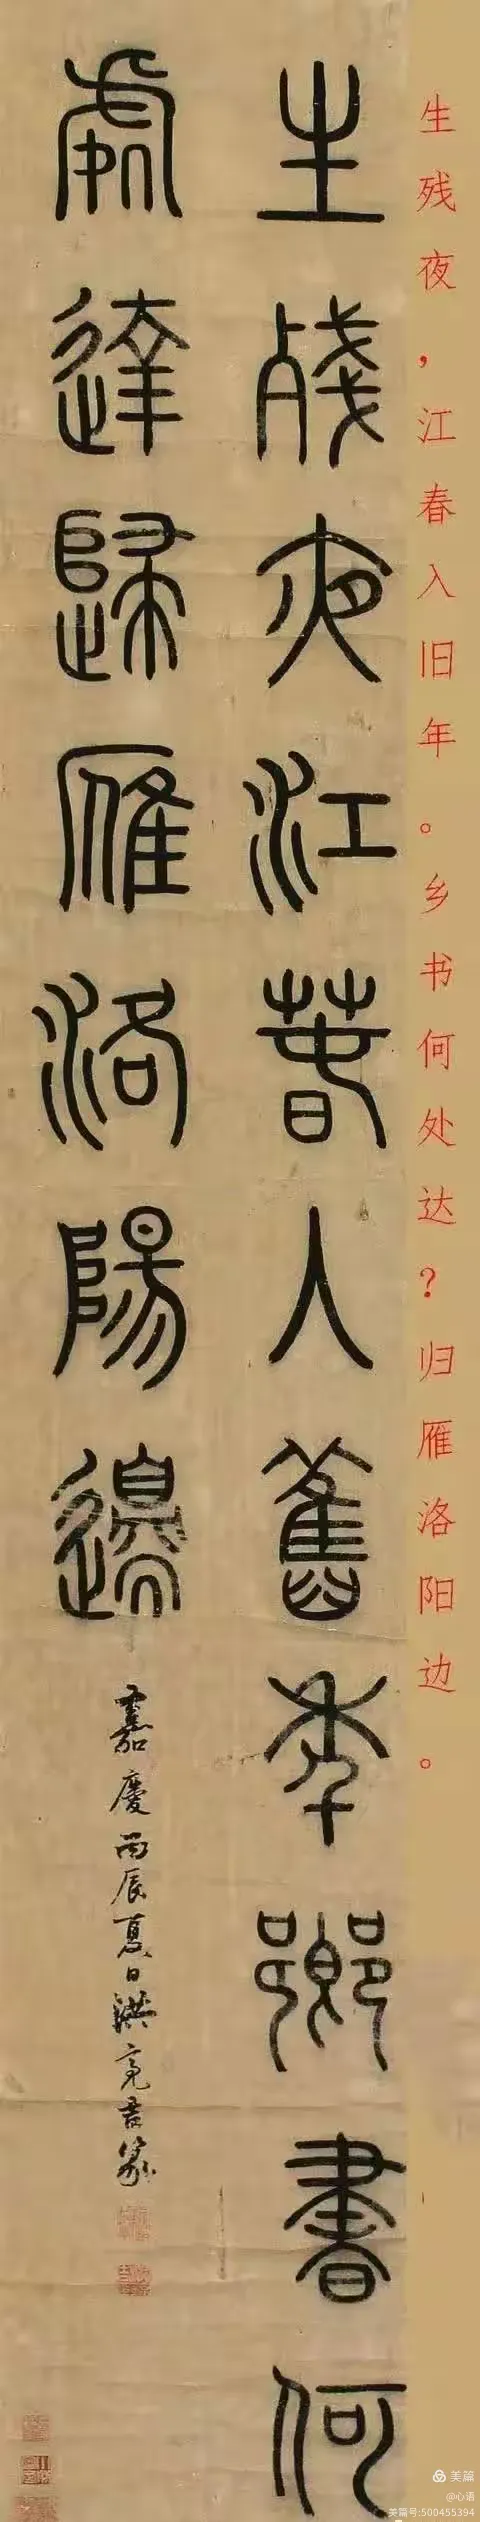 生残夜，江春入旧年。乡书何处达？归雁洛阳边。
生殘夜江春入舊年鄉書何
處達歸雁洛陽邊
嘉慶丙辰夏日洪亮吉篆
美篇
@心语
美篇号:500455394